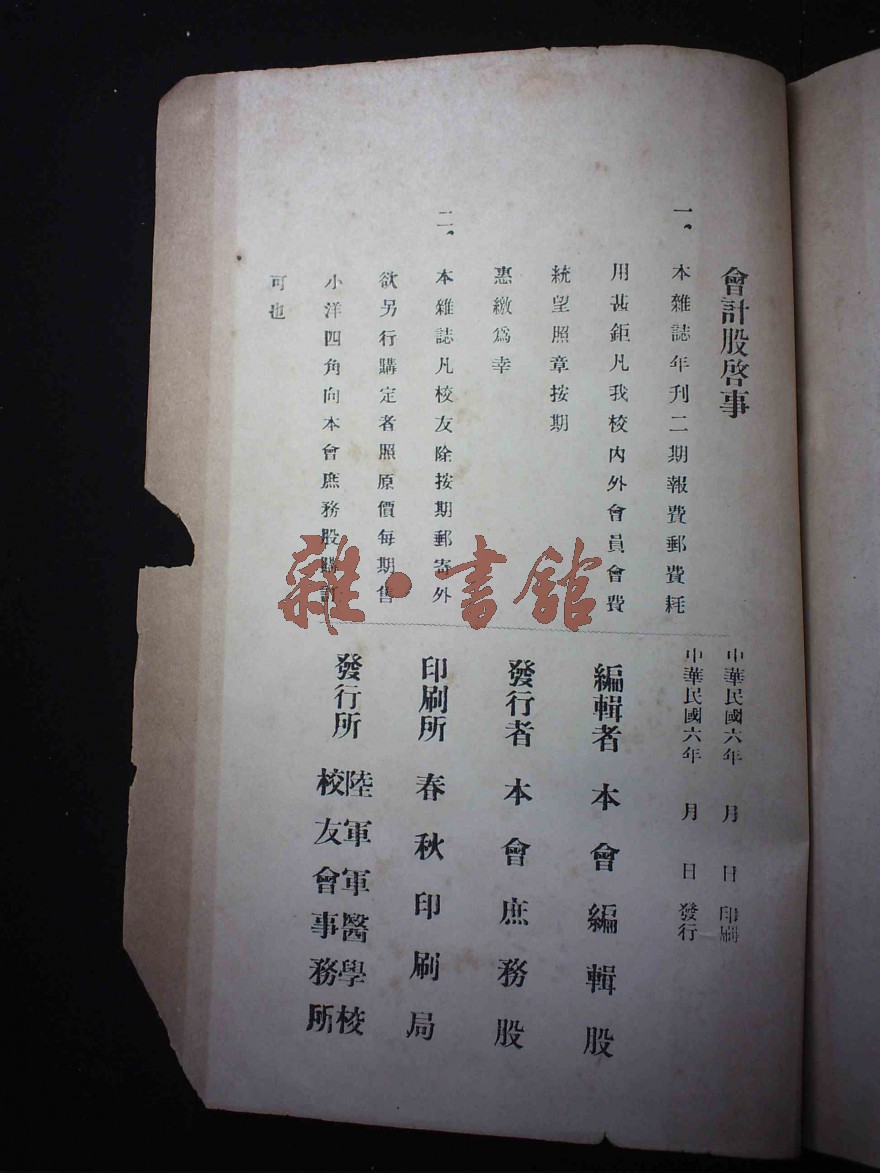 會計股啓事
一、本雜誌年刊二期報費郵費耗
用甚鉅凡我校內外會員會費
統望照章按期
惠繳爲幸
二、本雜誌凡校友除按期郵寄外
欲另行購定者照原價每期售
小洋四角向本會庶務股購訂
可也
中華民國六年 月 日 印刷
中華民國六年 月 日 發行
編輯者 本會編輯股
發行者 本會庶務股
印刷所 春秋印刷局
發行所 陸軍軍醫學校
校友會事務所
雜·書館